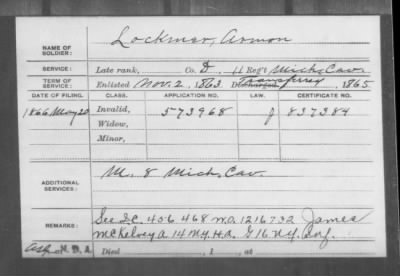 NAME OF SOLDIER: Lockmer, Armon
SERVICE: Late rank, Co. D 11 Reg't Mich. Cav.
TERM OF SERVICE: Enlisted Nov. 2, 1863 Discharged Transferred, 1865
DATE OF FILING. CLASS. APPLICATION NO. LAW. CERTIFICATE NO.
1866 May 20 Invalid, 573968 J 837384
Widow,
Minor,
ADDITIONAL SERVICES: M. 8 Mich. Cav.
REMARKS: See I.C. 456468 W.O. 1216732 James
McKelvey a 14 N.Y. H.A. G 16 N.Y. Inf.
N.D.A. Died , 1 , at